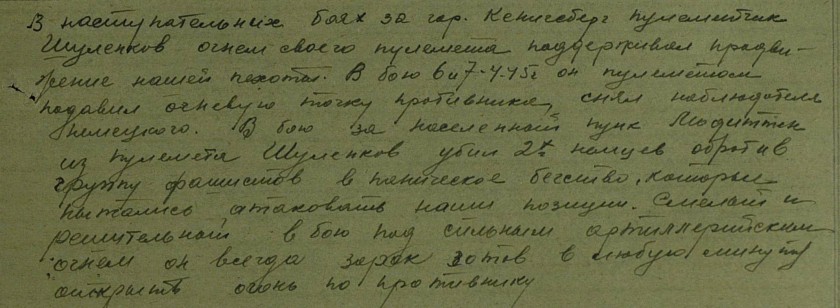 В наступательных боях за гор. Кенигсберг пулеметчик
Шуленков огнем своего пулемета поддерживал продви-
жение нашей пехоты. В бою 6 и 7.4.45г он пулеметом
подавил огневую точку противника, снял наблюдателя
немецкого. В бою за населенный пунк Модиттен
из пулемета Шуленков убил 2х немцев обротив
группу фашистов в паническое бегство, которые
пытались атаковать наши позиции. Смелый и
решительный в бою под сильным артиллерийским
огнем он всегда зорок готов в любую минуту
открыть огонь по противнику